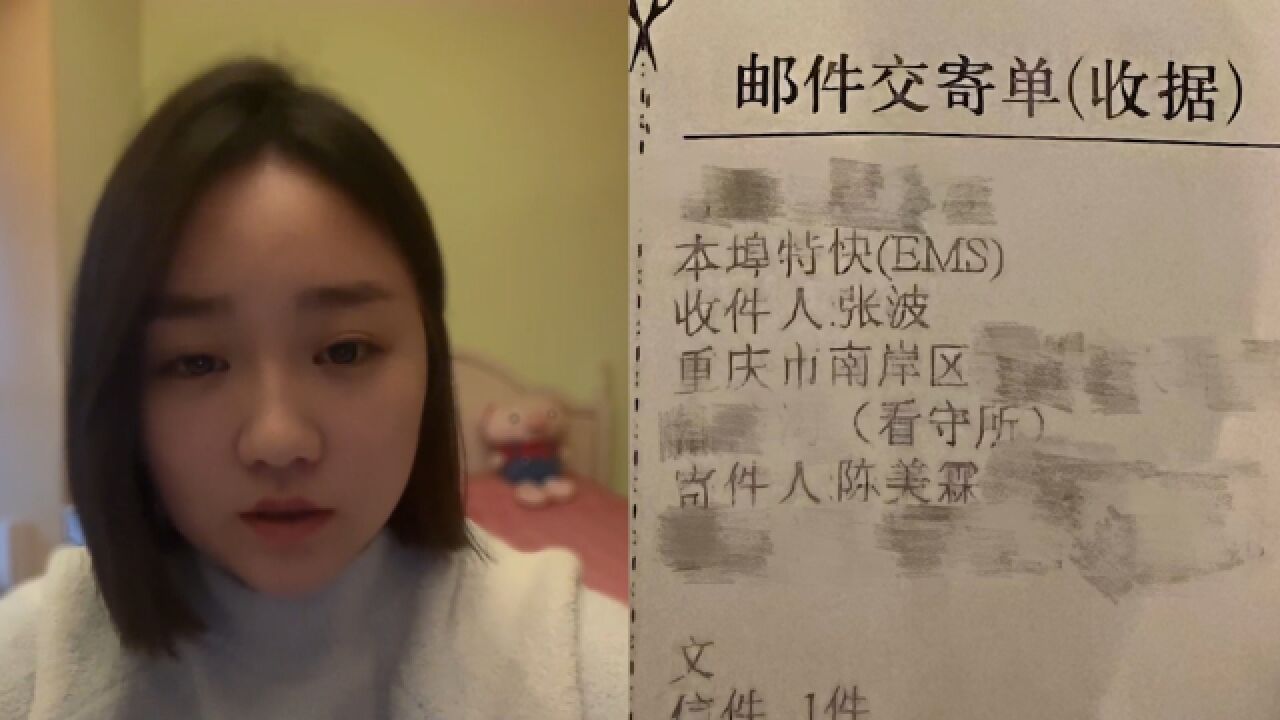 邮件交寄单(收据)
本埠特快(EMS)
收件人:张波
重庆市南岸区
（看守所）
寄件人:陈美霖
文
信件 1件